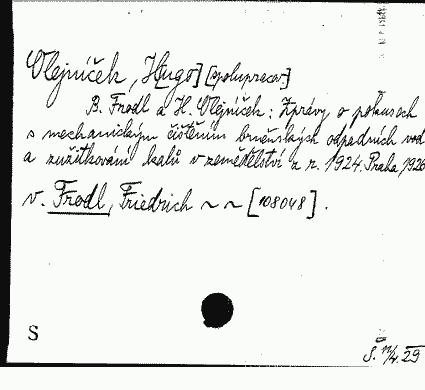 Vlejníček, H[ugo] [spolupracov.]
B. Frodl a H. Vlejníček: Zprávy o pokusech
s mechanickým čištěním brněnských odpadních vod
a zužitkování kalů v zemědělství z r. 1924. Praha, 1926
v. Frodl, Friedrich ~ ~ [108048].
S